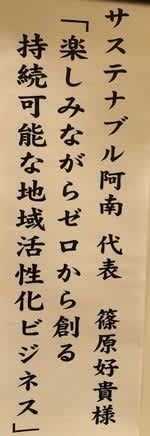 サステナブル阿南 代表 篠原好貴様
「楽しみながらゼロから創る
持続可能な地域活性化ビジネス」